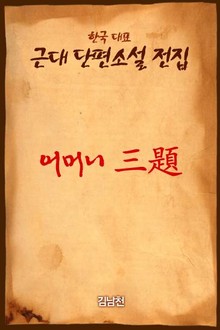 한국 대표
근대 단편소설 전집
어머니 三題
김남천